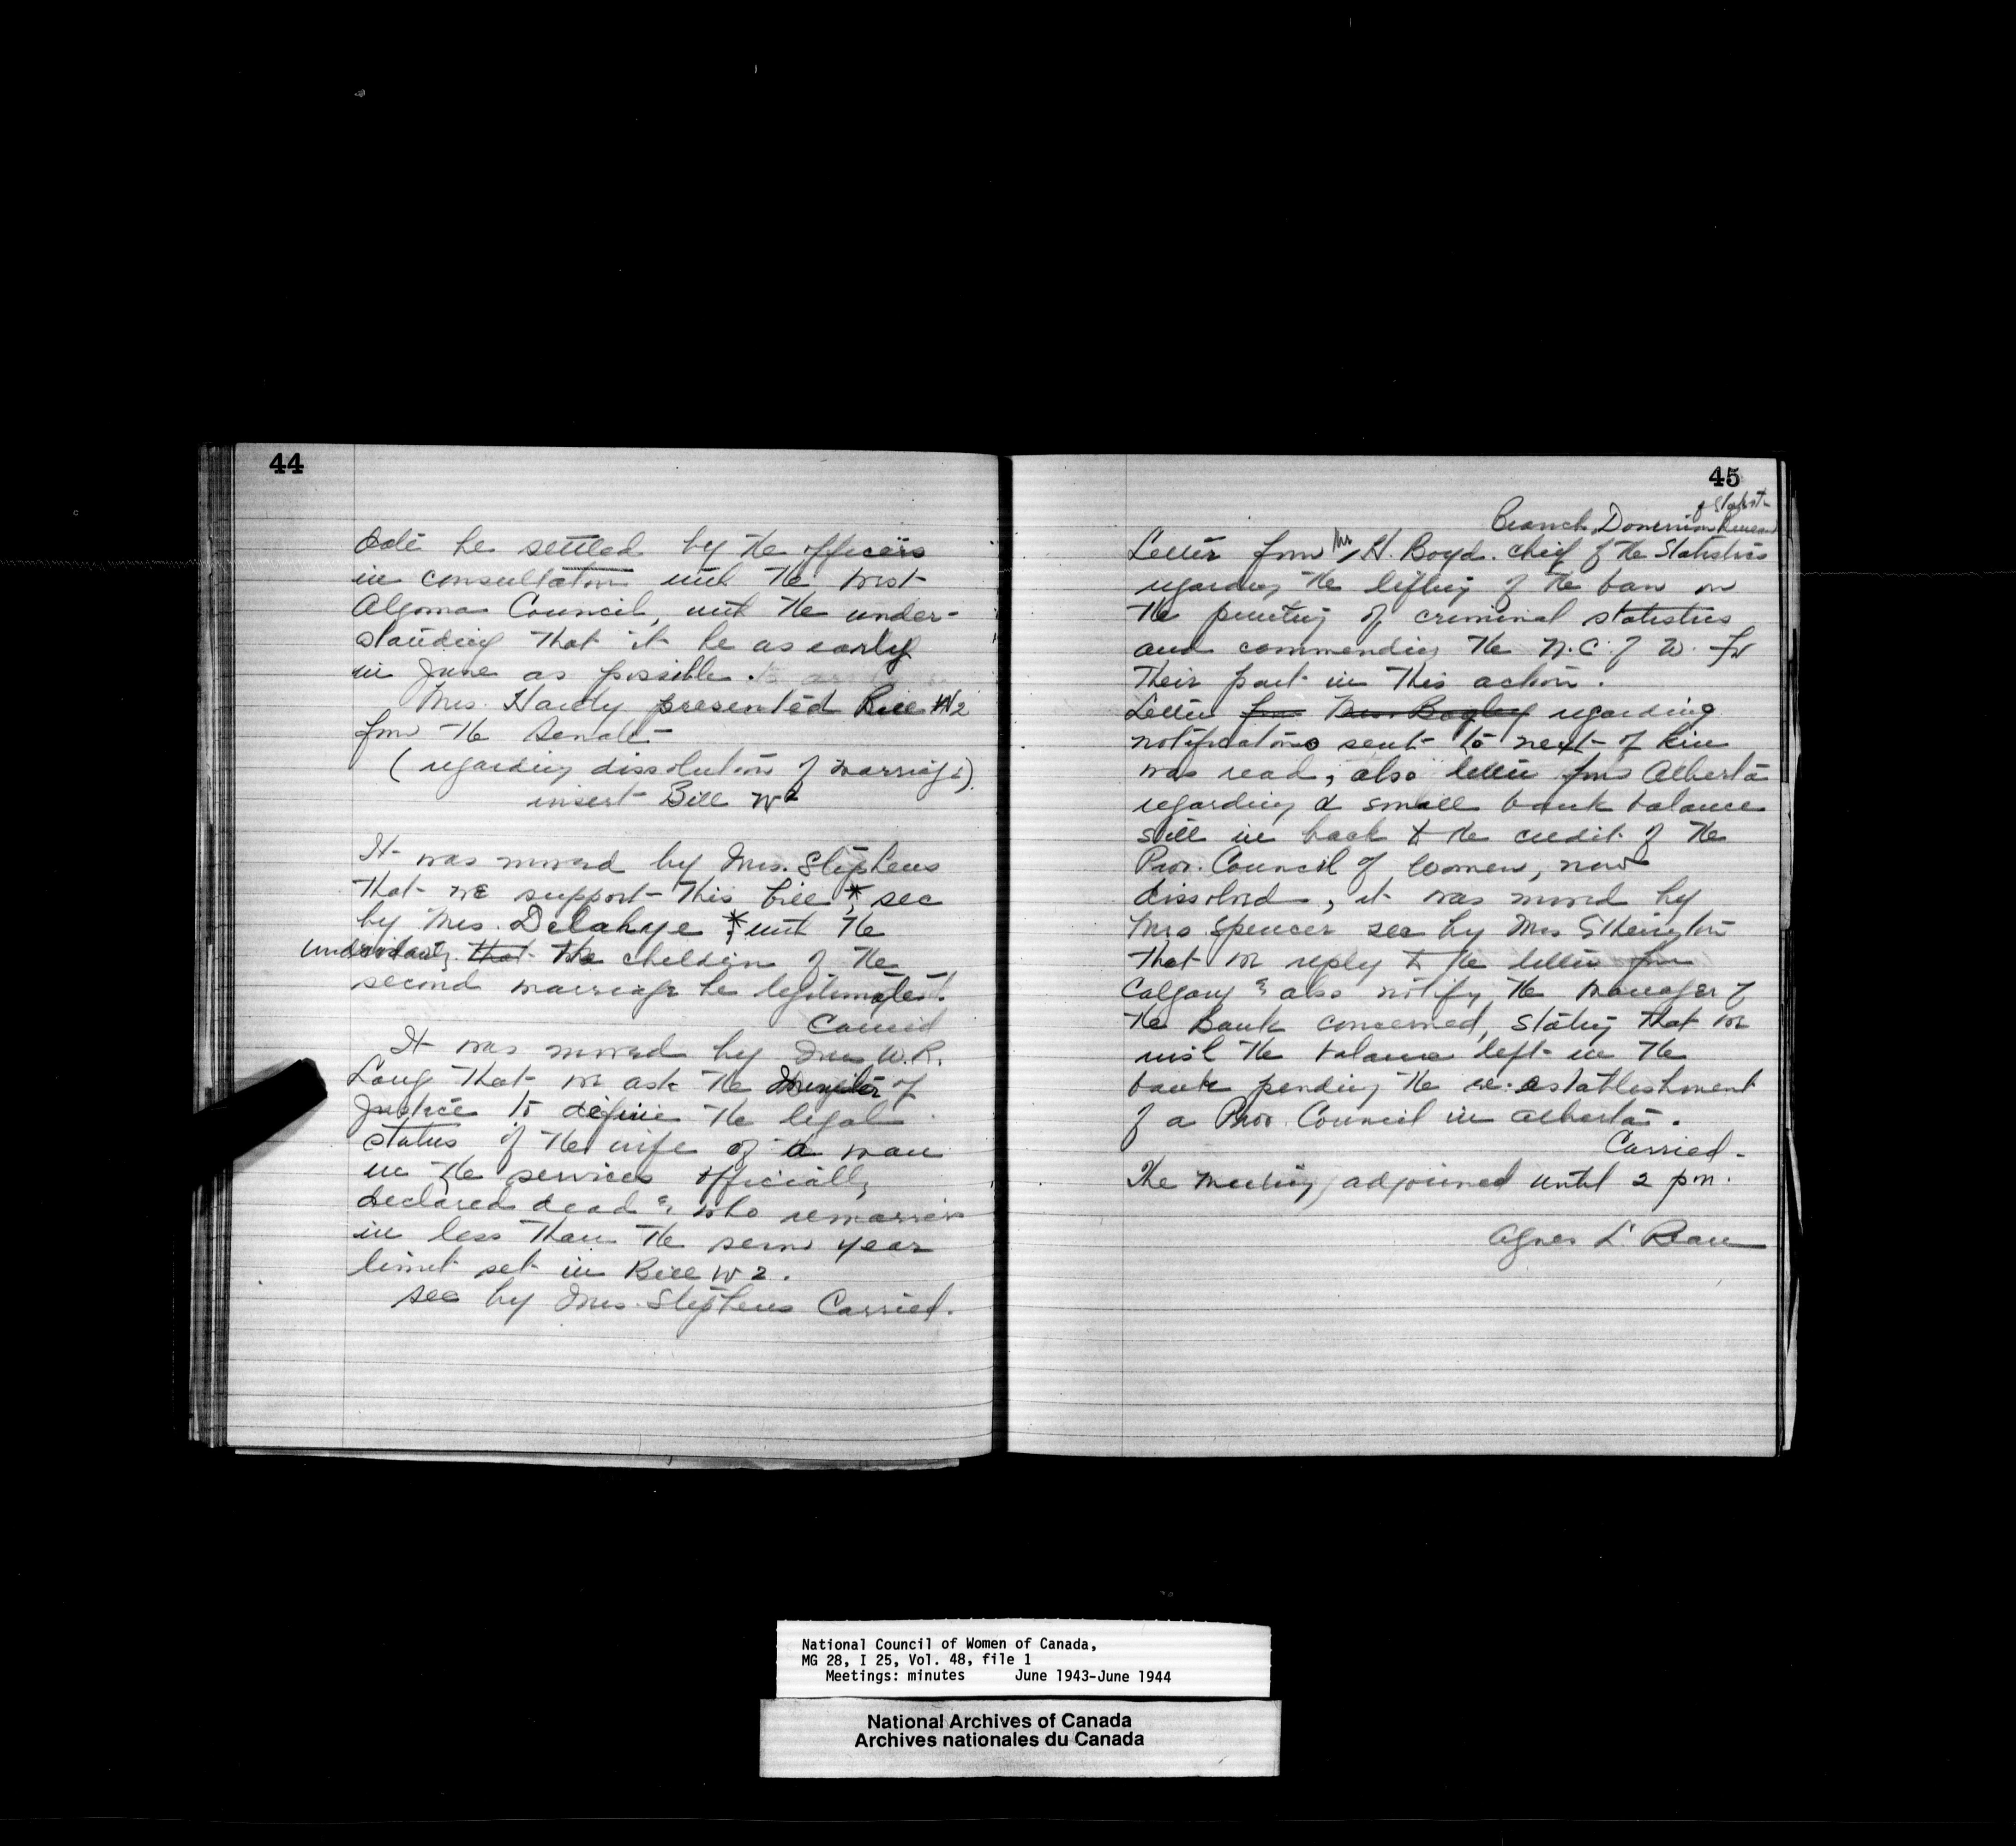 44
date be settled by the officers
in consultation with the West
Algoma Council, with the under-
standing that it be as early
in June as possible.
Mrs. Hardy presented Bill W2
from the Senate
(regarding dissolution of marriage).
insert Bill W2
It was moved by Mrs. Stephens
that we support this bill * sec
by Mrs. Delahye * with the
understanding that the children of the
second marriage be legitimated.
Carried
It was moved by Mrs W.R.
Lang that we ask the Minister of
Justice to define the legal
status of the wife of a man
in the services officially
declared dead & who remarries
in less than the seven year
limit set in Bill W2.
Sec by Mrs. Stephens Carried.
45
of Statist-
Branch, Dominion Bureau
Letter from Mr H. Boyd. chief of the Statistics
regarding the lifting of the ban on
the printing of criminal statistics
and commending the N.C. of W. for
their part in this action.
Letter from Mrs. Bagley regarding
notifications sent to next of kin
was read, also letter from Alberta
regarding a small bank balance
still in bank to the credit of the
Prov. Council of Women, now
dissolved, it was moved by
Mrs Spencer sec by Mrs
that we reply to the letter from
Calgary & also notify the manager of
the Bank concerned, stating that we
wish the balance left in the
bank pending the re-establishment
of a Prov. Council in Alberta.
Carried-
The meeting adjourned until 2 pm.
Agnes L.
National Council of Women of Canada,
MG 28, I 25, Vol. 48, file 1
Meetings: minutes June 1943-June 1944
National Archives of Canada
Archives nationales du Canada